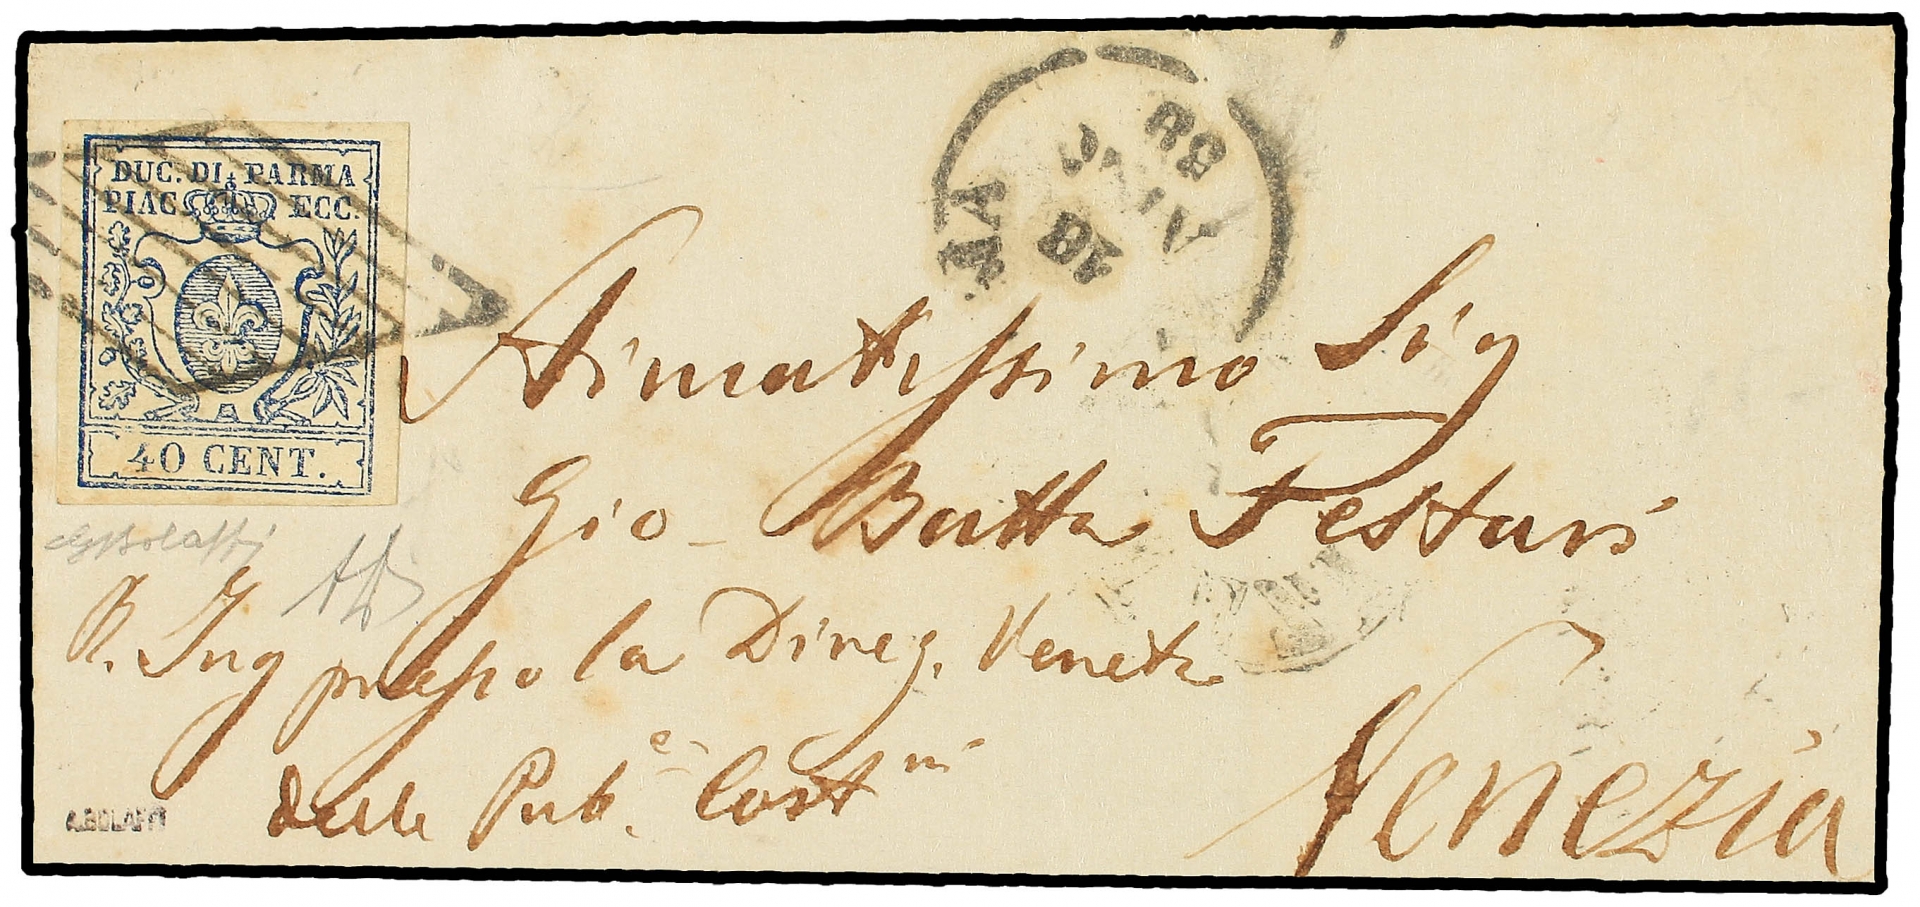 DUC. DI PARMA
PIAC. ECC.
40 CENT.
Amatissimo Sig
Gio Batta Festari
R. Ing presso la Direz. Veneta
delle Pub.e Cost.ni
Venezia
A.BOLAFFI